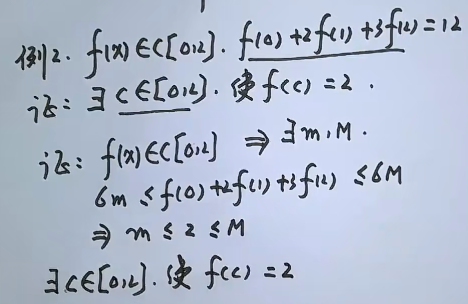 例2. f(x)∈C[0,2]. f(0)+2f(1)+3f(2)=12
证: ∃ c∈[0,2]. 使 f(c)=2.
证: f(x)∈C[0,2] ⇒ ∃m,M.
6m ≤ f(0)+2f(1)+3f(2) ≤6M
⇒ m ≤ 2 ≤ M
∃c∈[0,2]. 使 f(c)=2